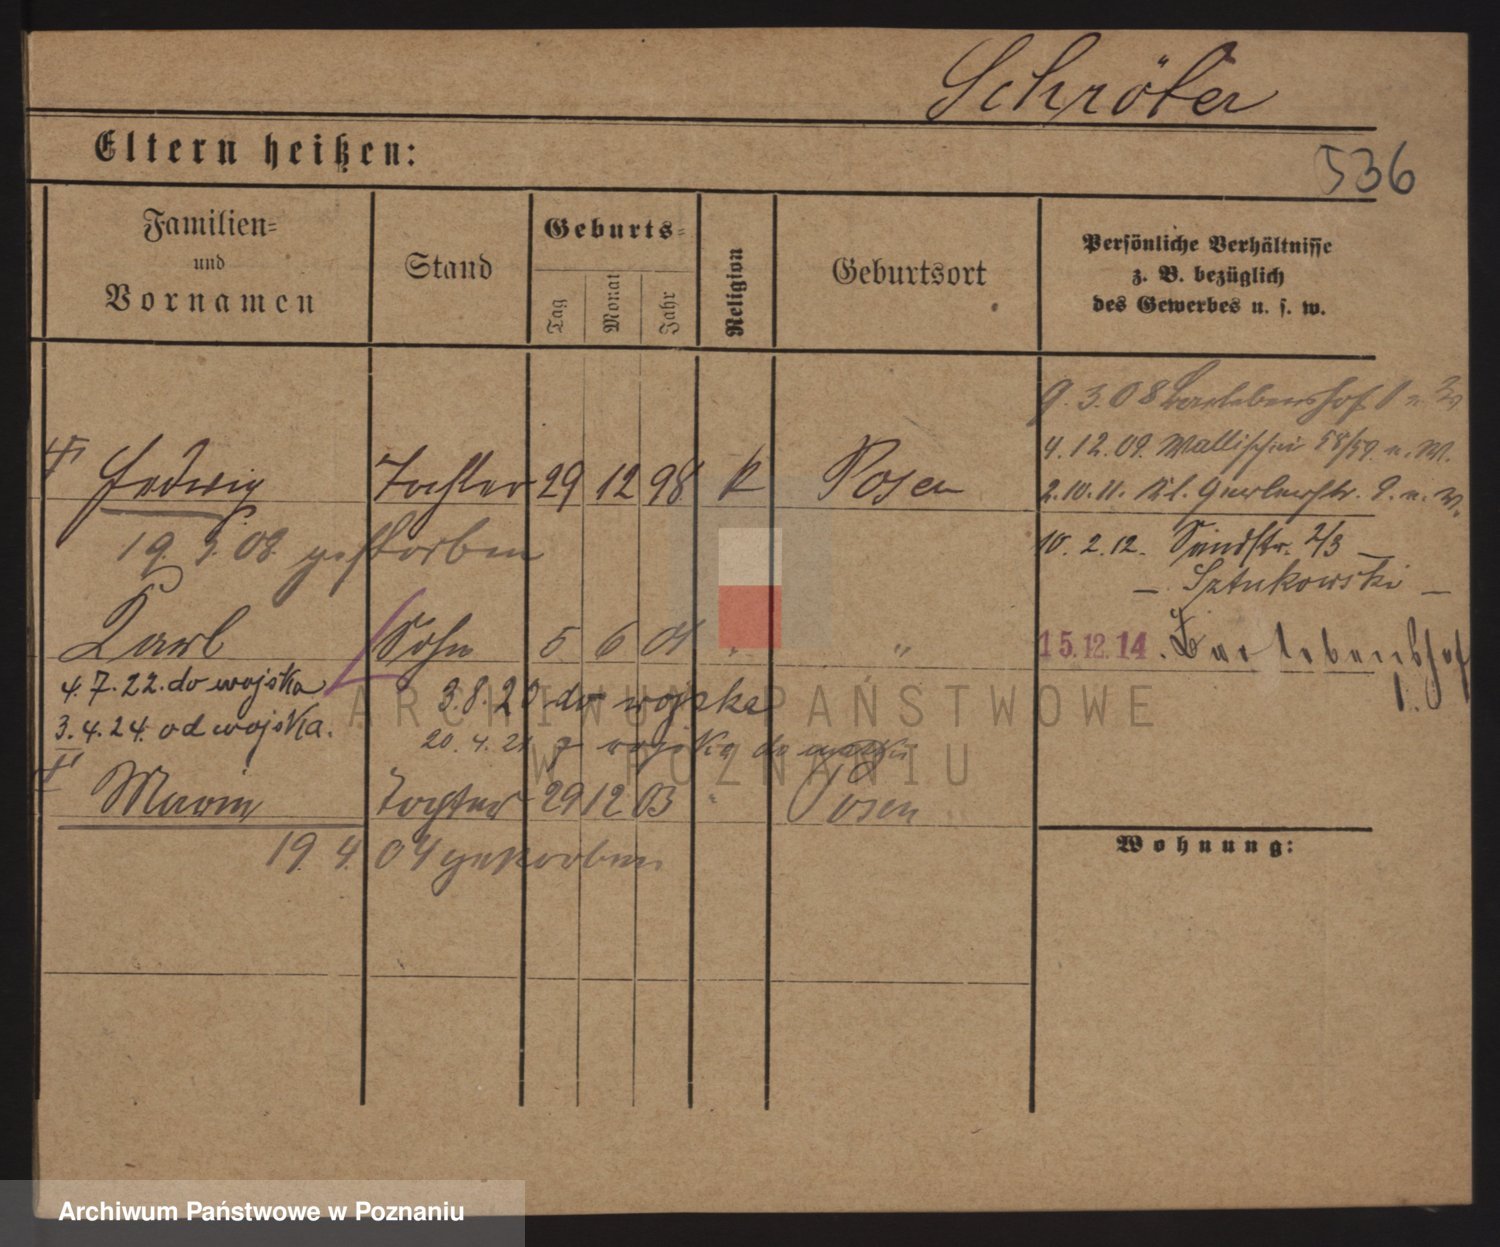 Schröter
536
Eltern heißen:
Familien- und Vornamen
Stand
Geburts-
Tag
Monat
Jahr
Religion
Geburtsort
Persönliche Verhältnisse
z. B. bezüglich
des Gewerbes u. s. w.
9.3.08 Bartebenshof 1
4.12.09. Wallischei 58/59
† Hedwig Tochter 29 12 98 k Posen
2.10.11. Kl. Gerberstr. 9.
19 3. 08. gestorben
10. 2. 12. Sandstr. 2/3 —
— Sztukowski —
Karl Sohn 5 6 01 " "
15.12.14. Bartebenshof
1.
4.7.22. do wojska
3.8.20 do wojska
3.4.24. od wojska.
20.4.21 z wojska do matki
† Marie Tochter 29 12 03 " Posen
19. 4. 04 gestorben
Wohnung:
ARCHIWUM PAŃSTWOWE
W POZNANIU
Archiwum Państwowe w Poznaniu